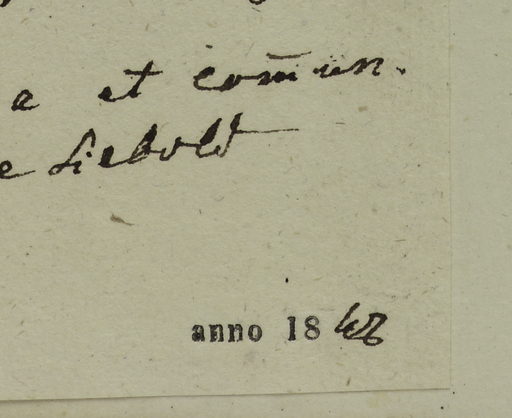 a et com̄un.
e Siebold
anno 1842